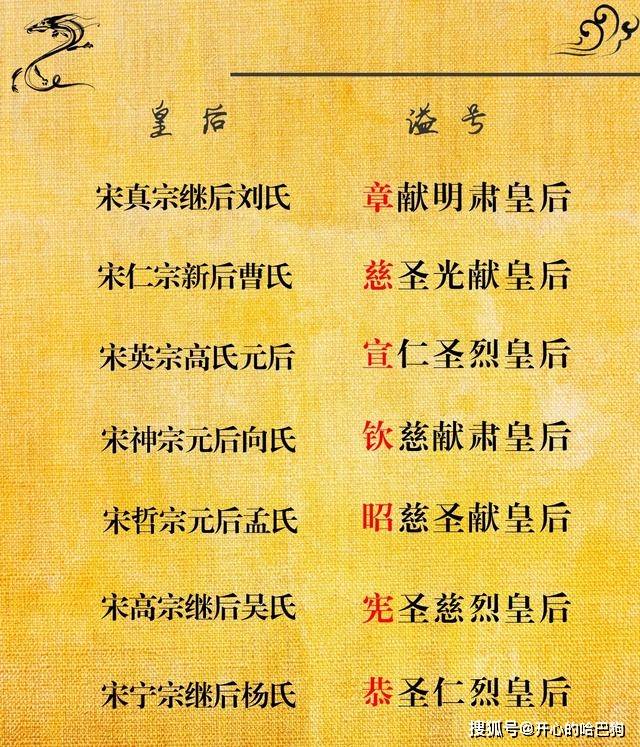 皇后 谥号
宋真宗继后刘氏 章献明肃皇后
宋仁宗新后曹氏 慈圣光献皇后
宋英宗高氏元后 宣仁圣烈皇后
宋神宗元后向氏 钦慈献肃皇后
宋哲宗元后孟氏 昭慈圣献皇后
宋高宗继后吴氏 宪圣慈烈皇后
宋宁宗继后杨氏 恭圣仁烈皇后
搜狐号@开心的哈巴狗